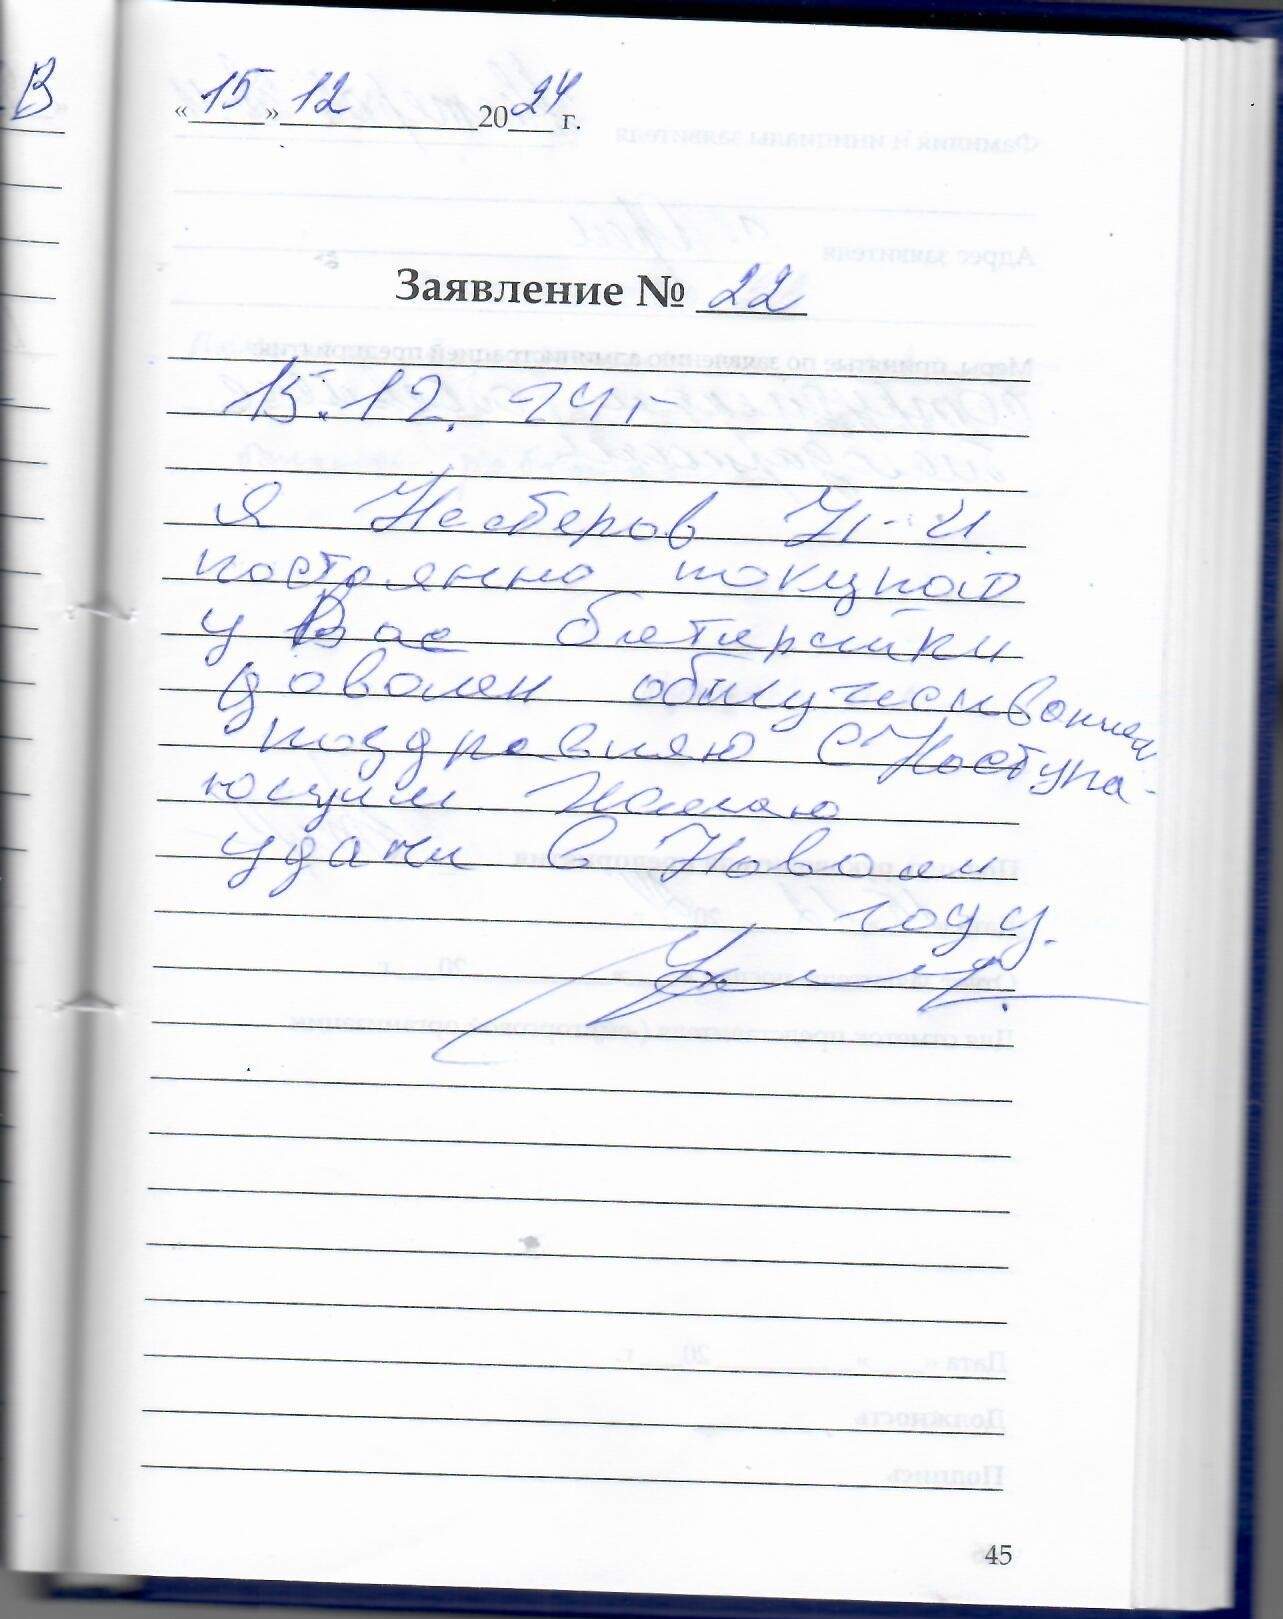 В
«15» 12 2024 г.
Заявление № 22
15.12. 24г
Я Нестеров
постоянно покупаю
у Вас батарейки
доволен обслуживанием
поздравляю С Наступа-
ющим Желаю
удачи в Новом
году.
45